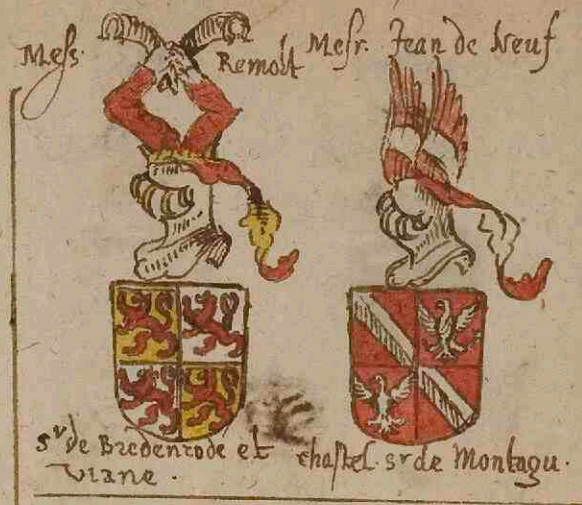 Mess. Remolt
sr de Bredenrode et
Viane .
Mesr. Jean de Neuf
chastel . sr de Montagu .